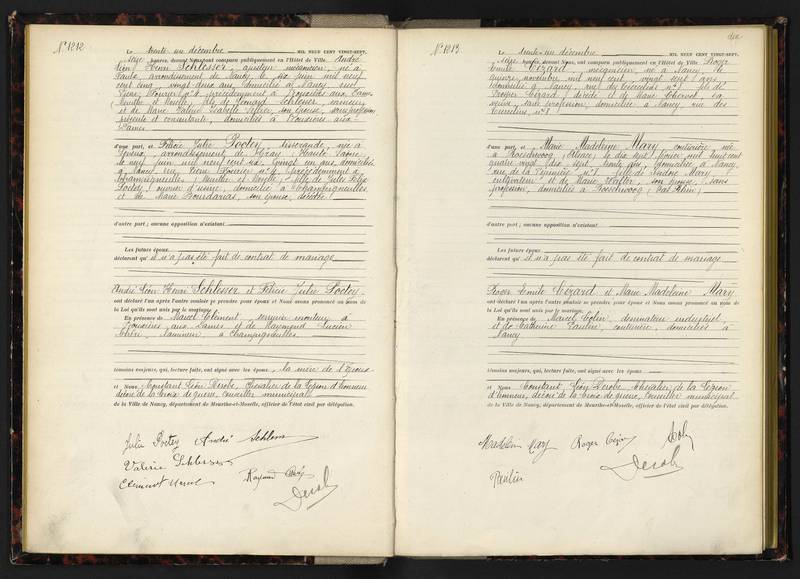 N° 1212
Le trente un décembre MIL NEUF CENT VINGT-SEPT,
heures, devant Nous ont comparu publiquement en l'Hôtel de Ville: André
Léon Henri Schlesser, ajusteur mécanicien, né à
arrondissement de Nancy le six juin mil neuf
cent cinq, vingt deux ans, domicilié à Nancy, rue
n° 4, précédemment à aux Dames
(Meurthe et Moselle), fils de Schlesser,
et de Marie Valérie son épouse, sans profession
présente et consentante, domiciliés à aux
Dames
d'une part, et Félicie Julie Poctey, née à
arrondissement de Gray, Haute Saône,
le neuf juin mil neuf cent six, vingt un ans, domiciliée
à Nancy rue n° 4, précédemment à
Champigneulles (Meurthe et Moselle), fille de Jules Félix
Poctey, ouvrier d'usine, domicilié à Champigneulles,
et de Marie son épouse, décédée
d'autre part; aucune opposition n'existant
Les futurs époux
déclarent qu'il n'a pas été fait de contrat de mariage
André Léon Henri Schlesser et Félicie Julie Poctey
ont déclaré l'un après l'autre vouloir se prendre pour époux et Nous avons prononcé au nom de
la Loi qu'ils sont unis par le mariage.
En présence de Marcel Clément, serrurier monteur à
aux Dames et de Raymond Lucien
à Champigneulles
témoins majeurs, qui, lecture faite, ont signé avec les époux, la mère de l'époux
et Nous Constant Léon Derobe, Chevalier de la Légion d'honneur
décoré de la Croix de guerre, Conseiller municipal
de la Ville de Nancy, département de Meurthe-et-Moselle, officier de l'état civil par délégation.
Julie Poctey André Schlesser
Valérie Schlesser
Clément Marcel Raymond
Derobe
N° 1213
Le trente-un décembre MIL NEUF CENT VINGT-SEPT,
heures, devant Nous, ont comparu publiquement en l'Hôtel de Ville: Roger
Emile Cézard, mécanicien, né à Nancy, le
novembre mil neuf cent, vingt sept ans,
domicilié à Nancy, rue des n° 1, fils de
Prosper Cézard, décédé et de Marie sa
veuve, sans profession, domiciliée à Nancy, rue des
n° 1
d'une part, et Marie Madeleine Mary, couturière, née
à (Alsace) le dix sept février mil huit cent
quatre vingt dix sept, trente ans, domiciliée à Nancy,
rue de la Pépinière n° 1, fille de Mary,
cultivateur et de Marie son épouse, sans
profession, domiciliés à (Bas Rhin)
d'autre part; aucune opposition n'existant
Les futurs époux
déclarent qu'il n'a pas été fait de contrat de mariage
Roger Emile Cézard et Marie Madeleine Mary
ont déclaré l'un après l'autre vouloir se prendre pour époux et Nous avons prononcé au nom de
la Loi qu'ils sont unis par le mariage.
En présence de Marcel Colin, dessinateur industriel,
et de Catherine Paulin, couturière, domiciliés à
Nancy
témoins majeurs, qui, lecture faite, ont signé avec les époux
et Nous Constant Léon Derobe, Chevalier de la Légion
d'honneur, décoré de la Croix de guerre, Conseiller municipal
de la Ville de Nancy, département de Meurthe-et-Moselle, officier de l'état civil par délégation.
Madeleine Mary Roger Cézard Colin
Derobe
Paulin